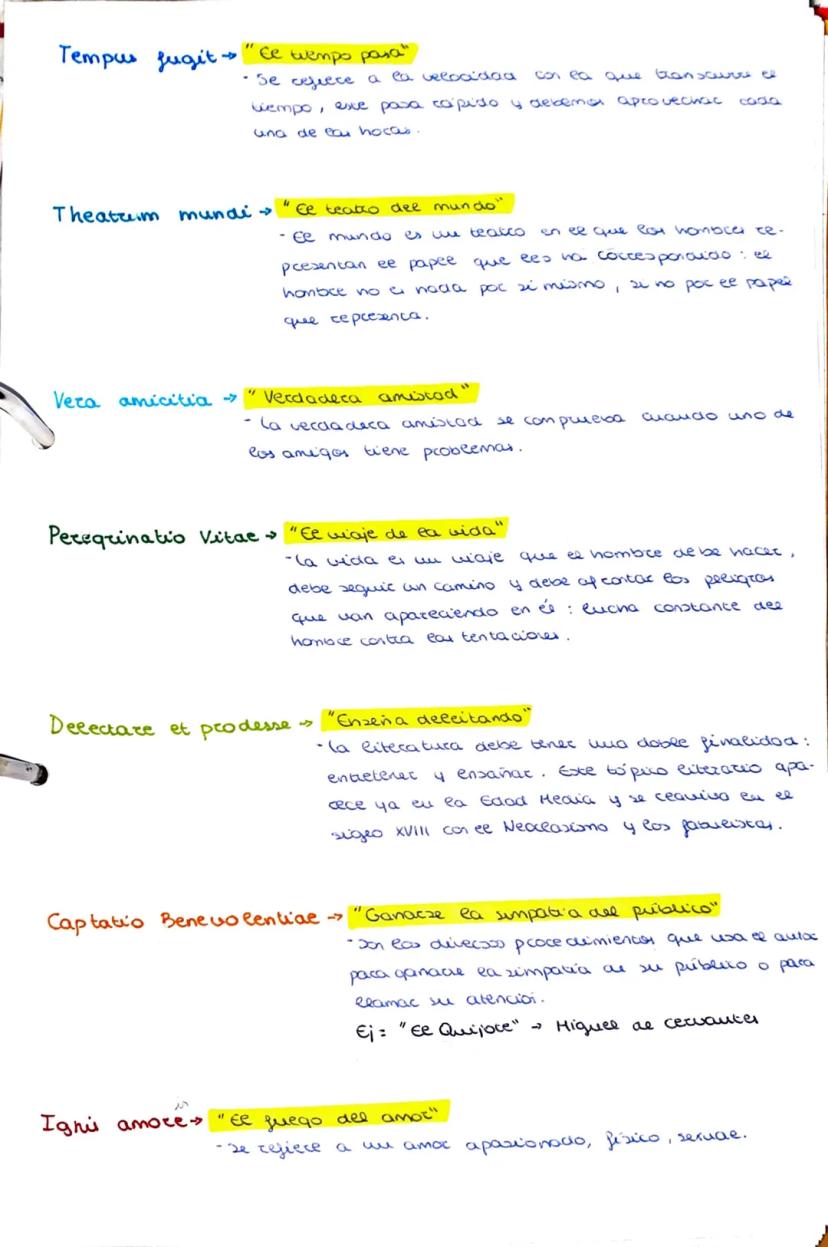 Tempus fugit → "El tiempo pasa"
- Se refiere a la velocidad con la que transcurre el
tiempo, este pasa rápido y debemos aprovechar cada
una de las horas.
Theatrum mundi → "El teatro del mundo"
- El mundo es un teatro en el que los hombres re-
presentan el papel que les ha correspondido: el
hombre no es nada por si mismo, si no por el papel
que representa.
Vera amicitia → "Verdadera amistad"
- La verdadera amistad se comprueba cuando uno de
los amigos tiene problemas.
Peregrinatio Vitae → "El viaje de la vida"
- La vida es un viaje que el hombre debe hacer,
debe seguir un camino y debe afrontar los peligros
que van apareciendo en él: lucha constante del
hombre contra las tentaciones.
Delectare et prodesse → "Enseña deleitando"
- La literatura debe tener una doble finalidad:
entretener y enseñar. Este tópico literario apa-
rece ya en la Edad Media y se reaviva en el
siglo XVIII con el Neoclasismo y los fabulistas.
Captatio Benevolentiae → "Ganarse la simpatía del público"
- Son los diversos procedimientos que usa el autor
para ganarse la simpatía de su público o para
llamar su atención.
Ej = "El Quijote" → Miguel de Cervantes
Ignis amore → "El fuego del amor"
- Se refiere a un amor apasionado, físico, sexual.